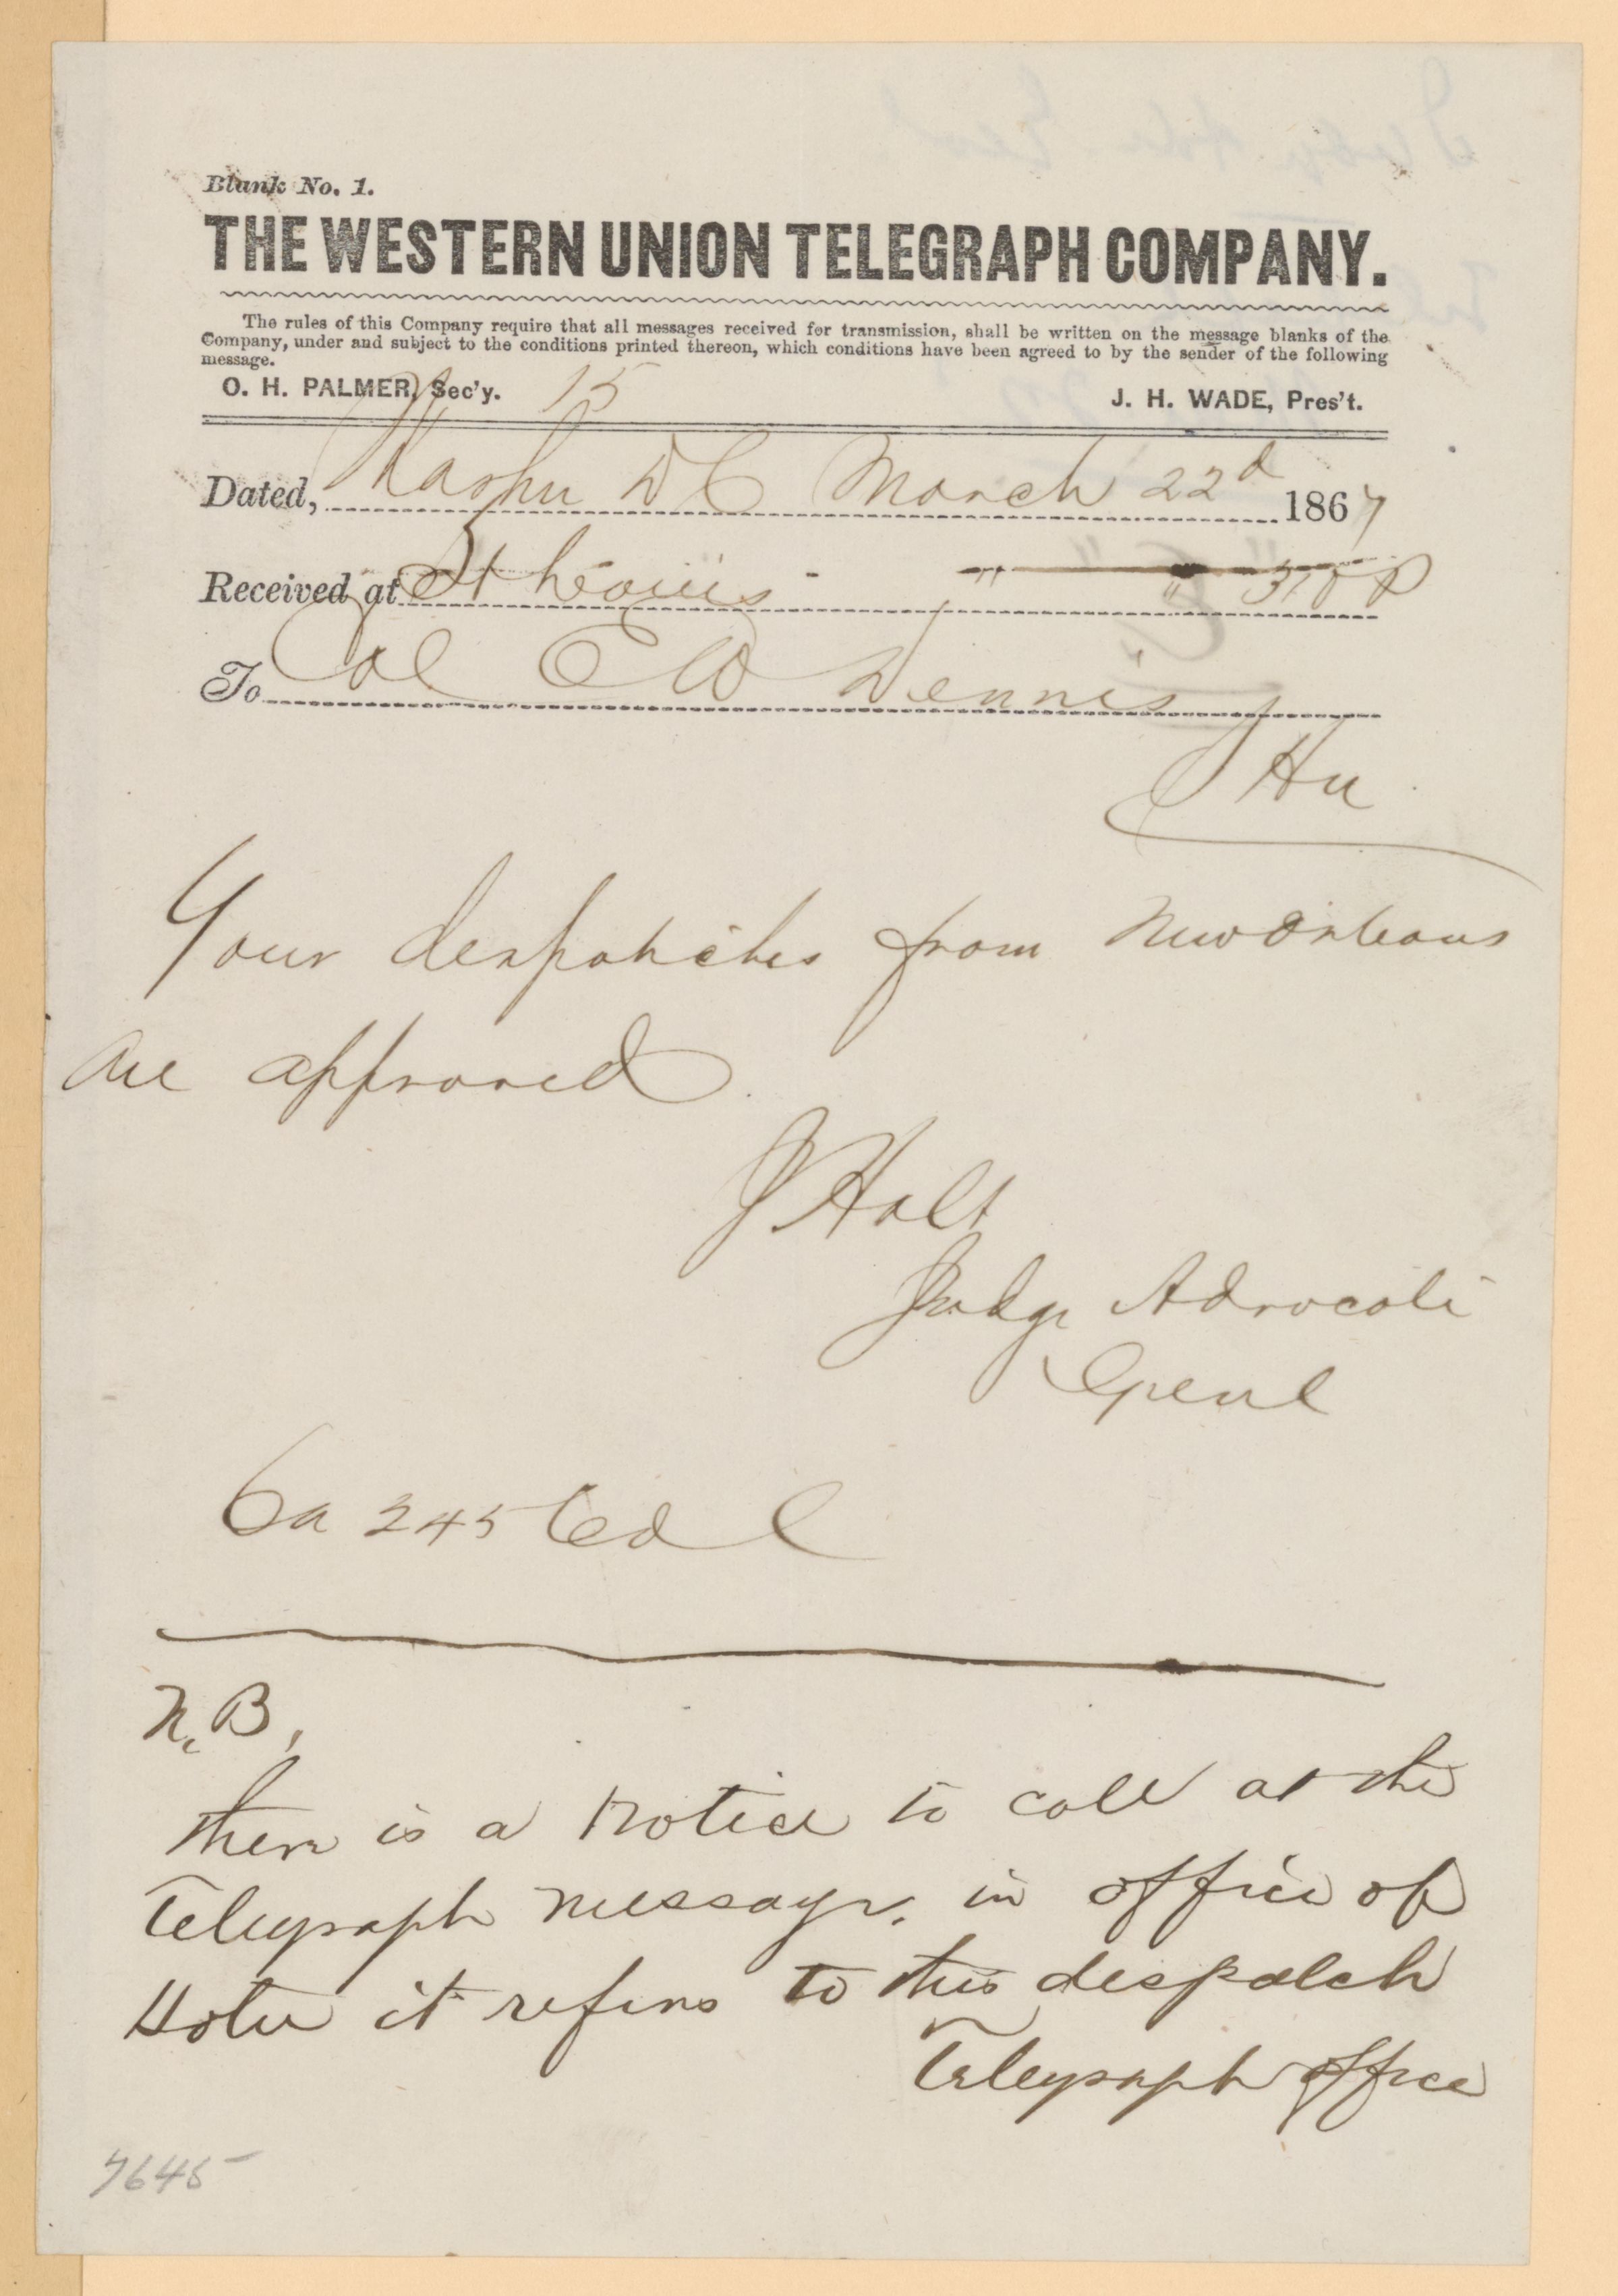 Blank No. 1.
THE WESTERN UNION TELEGRAPH COMPANY.
The rules of this Company require that all messages received for transmission, shall be written on the message blanks of the
Company, under and subject to the conditions printed thereon, which conditions have been agreed to by the sender of the following
message.
O. H. PALMER, Sec'y. 15 J. H. WADE, Pres't.
Dated, Washn D C March 22d 1867
Received at St Louis " "
To Col E W Dennis
S Hu
Your despatches from New Orleans
are approved
J Holt
Judge Advocate
Genl
245
N. B,
there is a Notice to call at the
Telegraph message, in office of
Hotel it refers to this despatch
Telegraph office
7645